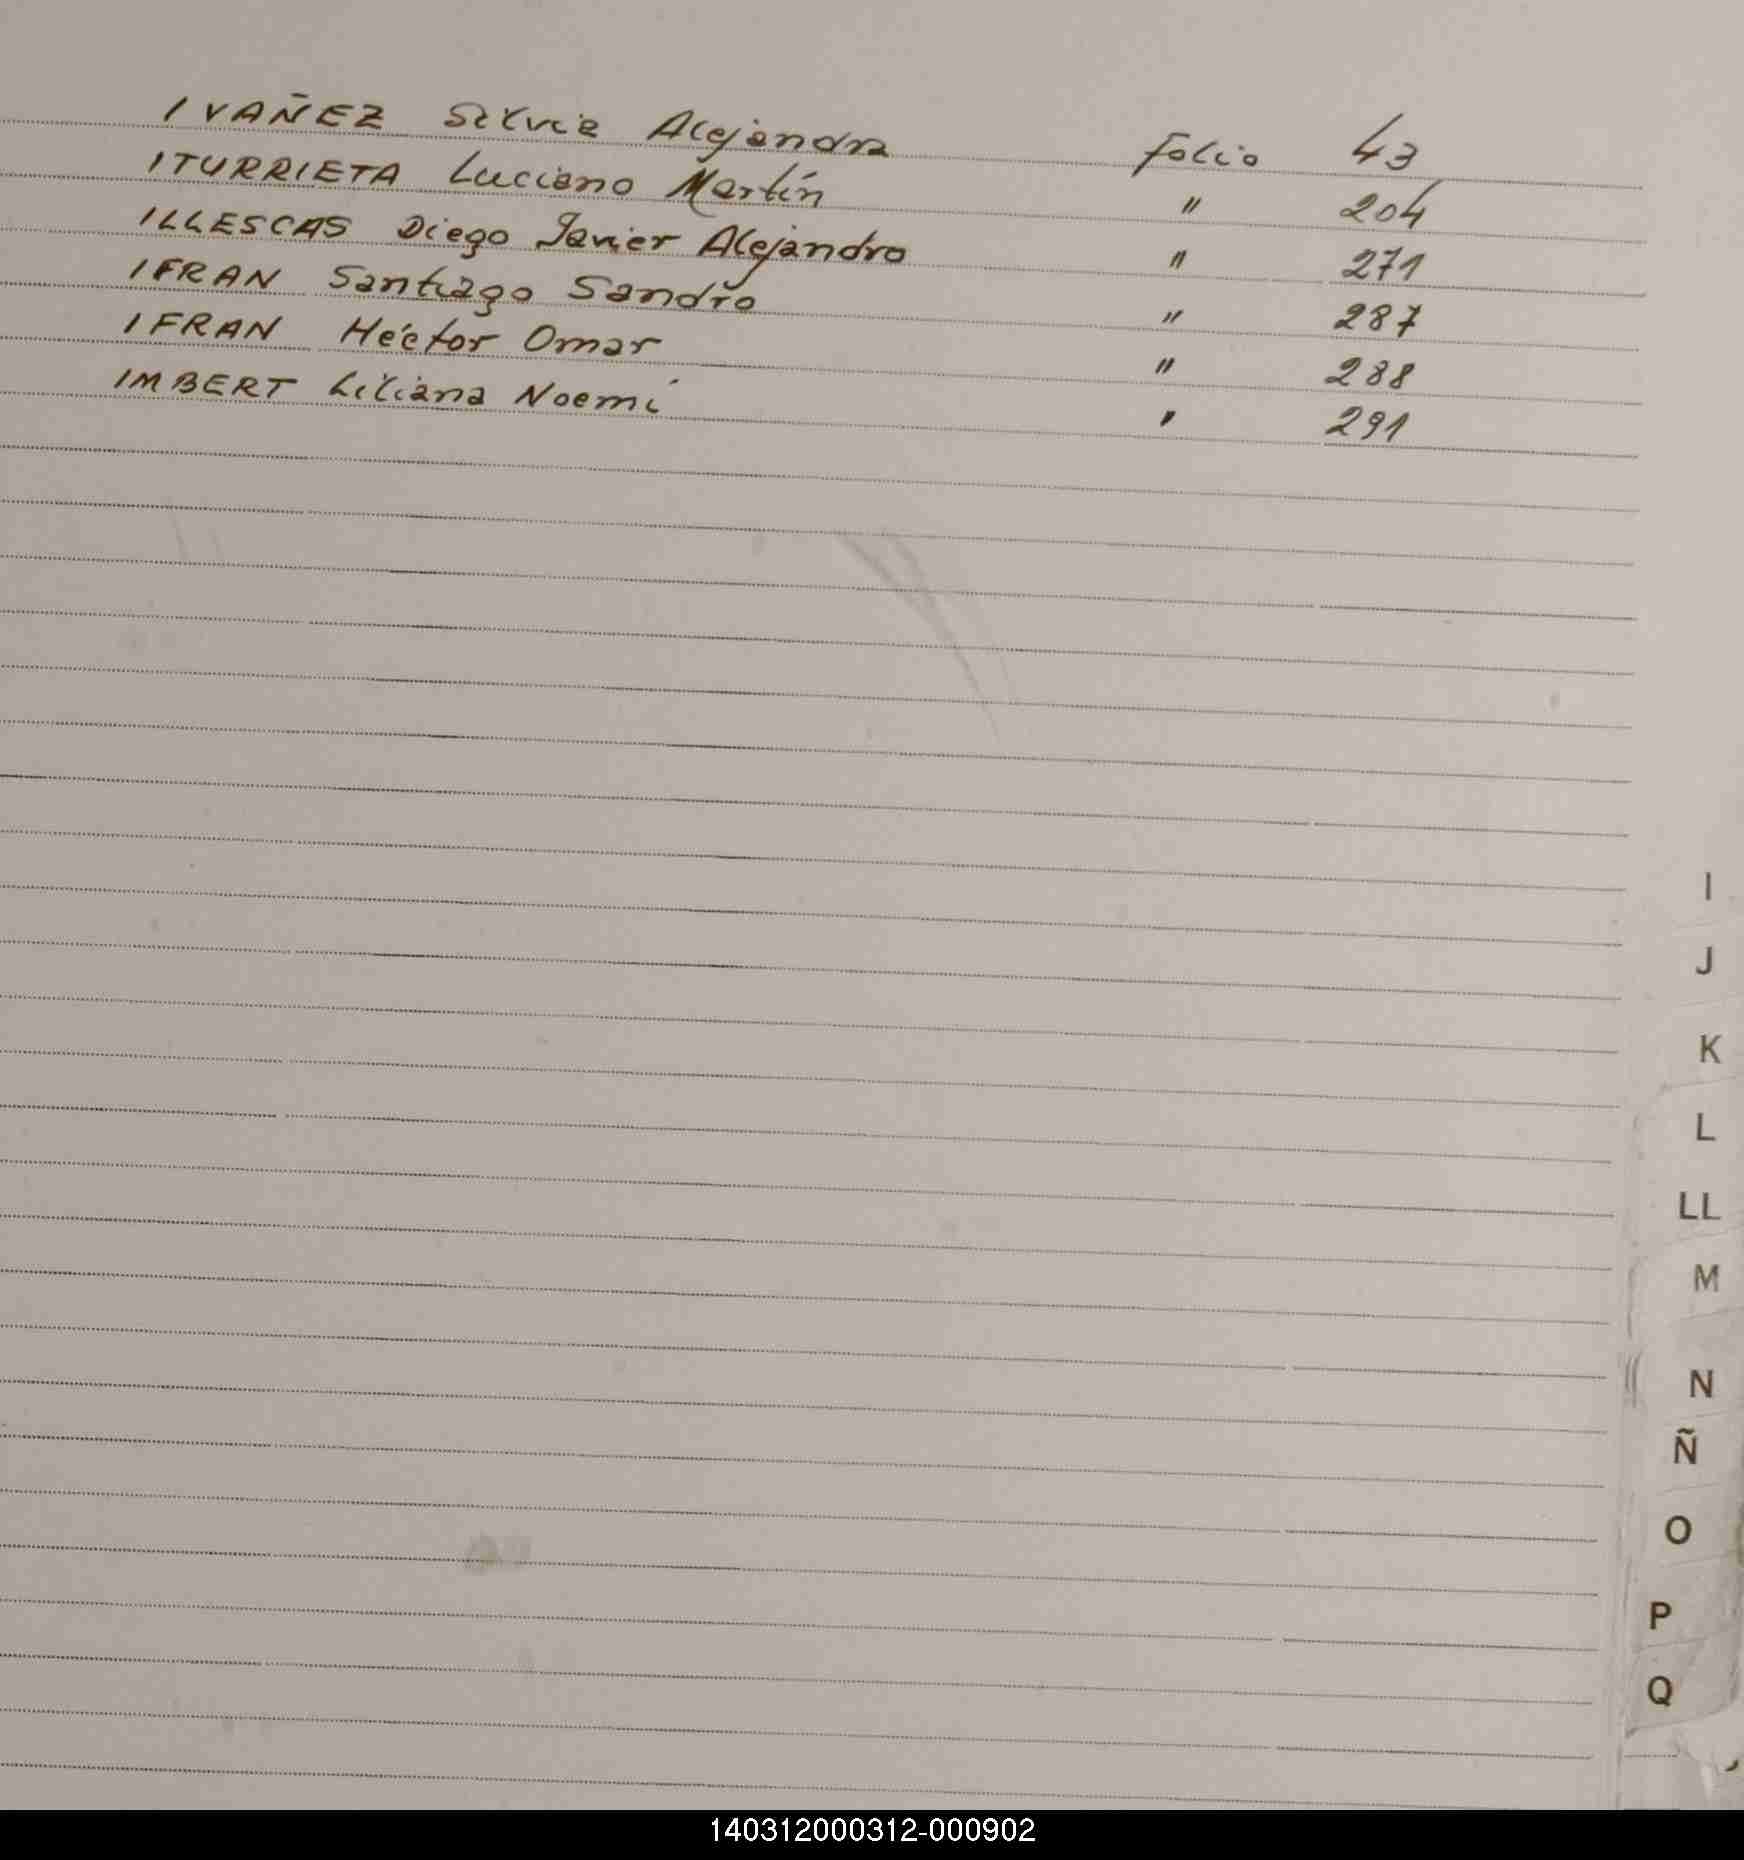 IVAÑEZ Silvia Alejandra folio 43
ITURRIETA Luciano Martín " 204
ILLESCAS Diego Javier Alejandro " 271
IFRAN Santiago Sandro " 287
IFRAN Héctor Omar " 288
IMBERT Liliana Noemí " 291
I
J
K
L
LL
M
N
Ñ
O
P
Q
140312000312-000902